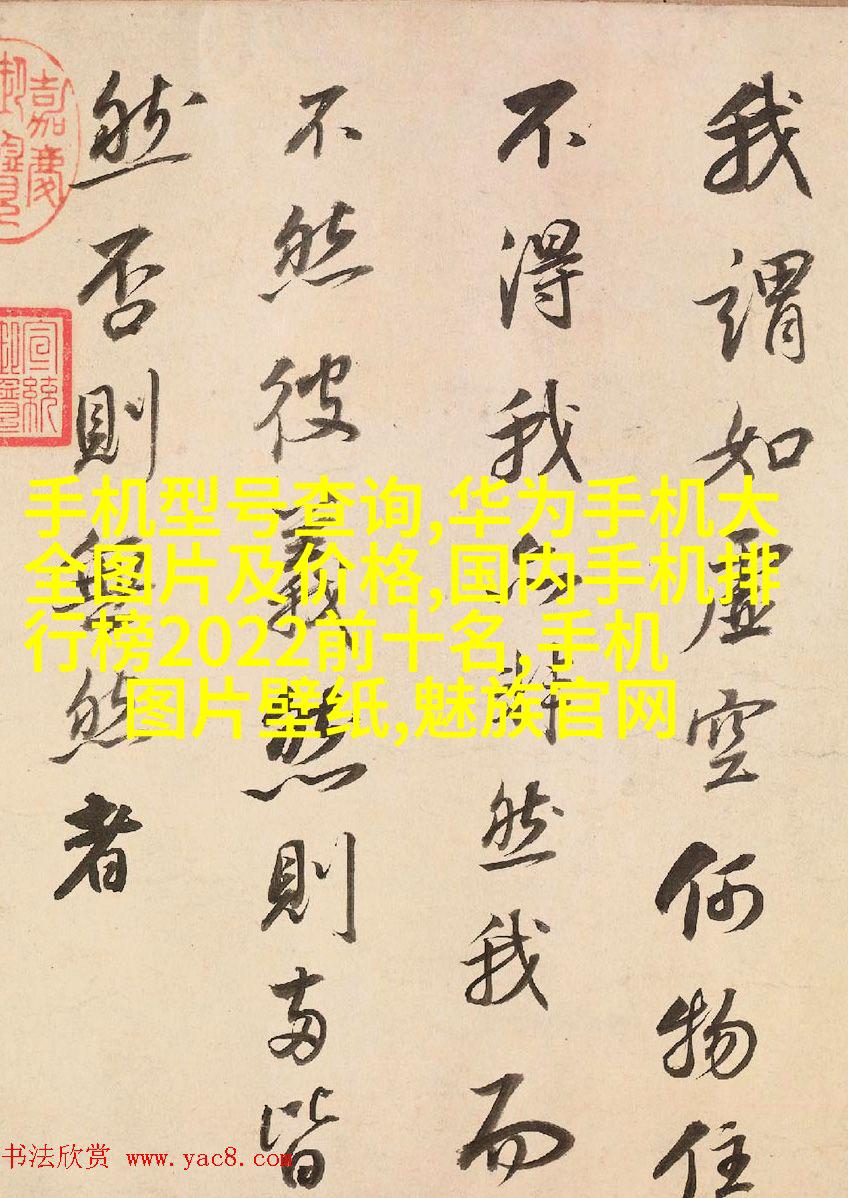 我謂如虛空何物住
不得我然我而
不然彼義然則兩皆
然否則無然者
嘉慶御覽之寶
宣統御覽之寶
手机型号查询,华为手机大
全图片及价格,国内手机排
行榜2022前十名,手机
图片壁纸,魅族官网
书法欣赏 www.yac8.com